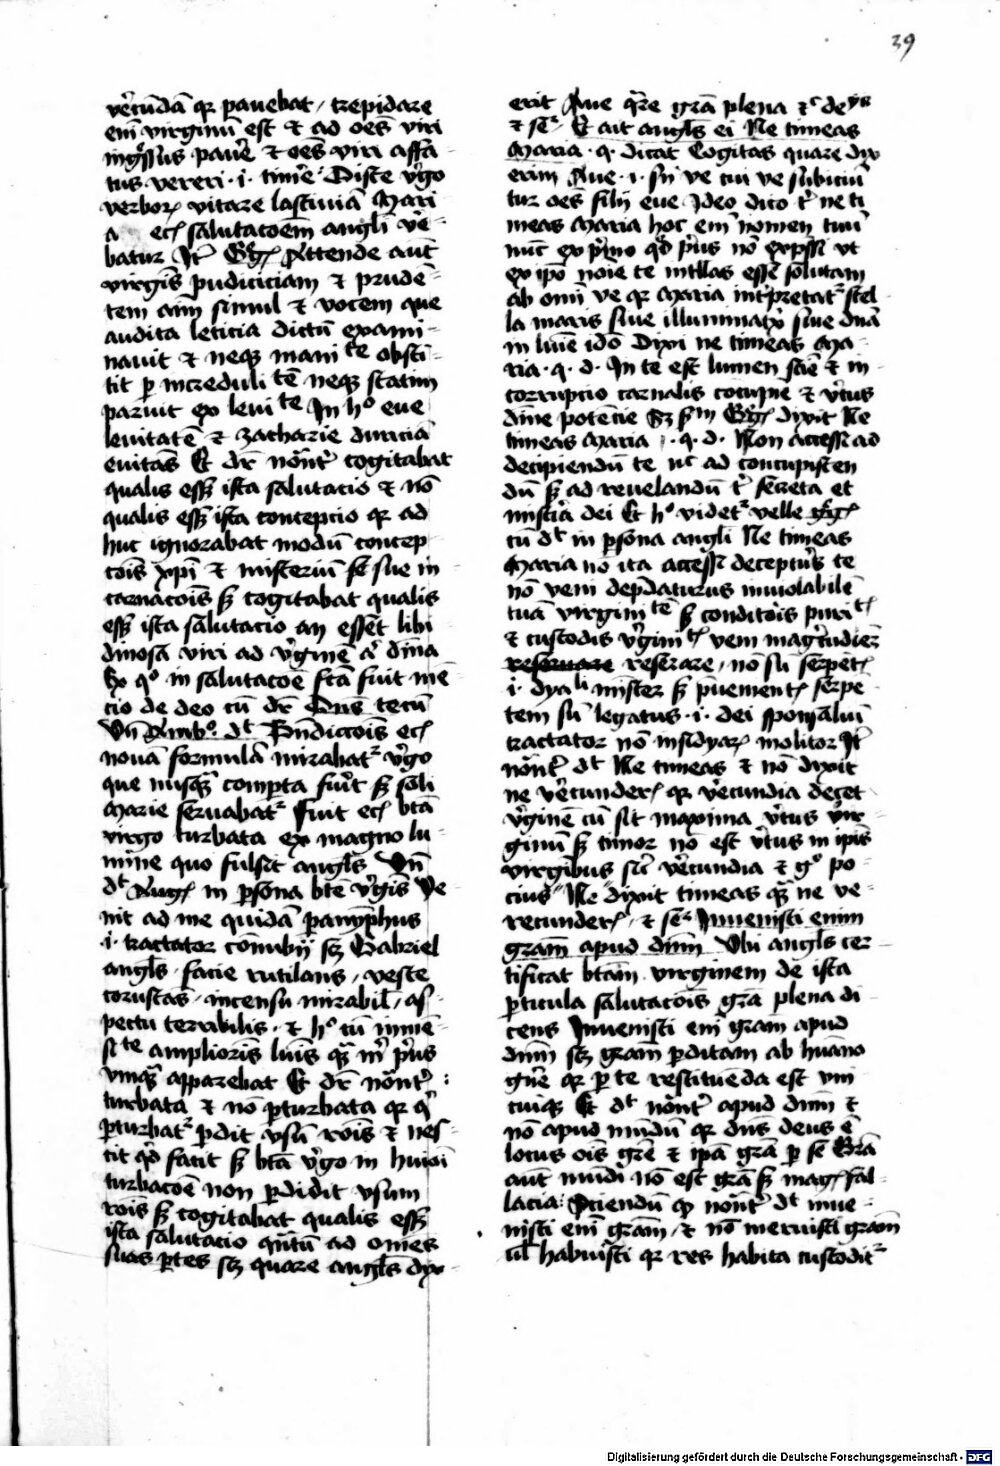 39
vẽcūdā qr pavebat / trepidare
em̄ virginū est ⁊ ad oēs viri
ingssus pavē ⁊ oēs viri affa
tus vereri · i · timẽ Disce v̾go
verboꝝ vitare lasciviā Mari
a eciā salutacoēm angli vē
batur Itē Gͤgꝰ Attende aut̄
virgīs pudiciciam ⁊ prudē
tem aīm simul ⁊ vocem que
audita leticia dictū exami
navit ⁊ neqꝫ mani te obsti
tit ꝑ increduli tē neqꝫ statim
paruit ex levi te In hͦ eue
levitatē ⁊ zacharie duriciā
evitās Et dr̄ nōnt̾ cogitabat
qualis essꝫ ista salutacio ⁊ nō
qualis essꝫ ista concepcio qr ad
huc ignorabat modū concep
cōis xp̄i ⁊ misteriū se sue in
carnacōis sꝫ cogitabat qualis
essꝫ ista salutacio an essēt libi
dinosā viri ad v̾ginē aͥ dīna
Ex qͦ in salutacoē fcā fuit mē
cio de deo cū dr̄ Dn̄s tecū
Vn̄ Ambͦ · dt Bn̄diccōis eciā
novā formulā mirabatͬ v̾go
que nusqᷓ comꝑta fuit sꝫ soli
Marie servabatͬ Fuit eciā btā
virgo turbata ex magno lu
mīne quo fulsit angls Vn̄
dt Augꝰ in ꝑsona bte v̾gīs Ve
nit ad me quidā paranymphus
· i · tractator connubij sꝫ Gabriel
angls / facie rutilans / veste
coruscās / incensu mirabil / as
pectu terribilis · ⁊ hͦ cū inmē
si te amplioris lumīs qᷓ m̄ prius
unqᷓ apparebat Et dr̄ nōnt̾ :
turbata ⁊ nō ꝑturbata qr qͥ
ꝑturbatͬ ꝑdit usū rōis ⁊ nes
cit qͩ facit sꝫ btā v̾go in huiōi
turbacoē non ꝑdidit usum
rōis sꝫ cogitabat qualis essꝫ
ista salutacio qᷓntū ad omēs
suas ꝑtes sꝫ quare angls dyx
erit Ave qͬe grā plena ⁊c de
⁊ seͬ Et ait angls ei Ne timeas
Maria · q · dicat Cogitas quare dix
erim Ave · i · sn̄ ve cui ve subiciū
tur oēs filij eve Ideo dico tͥ ne ti
meas Maria hoc em̄ nomen tuū
nūc exprimo qͩ prius nō expssi ut
ex ip̄o noīe te intllas essē solutam
ab omi ve qr Maria int̾pretatͬ stel
la maris sive illuminatͬx sive dnā
in luīe idō Dixi ne timeas Ma
ria · q · d · In te est lumen scīe ⁊ in
corrupcio carnalis cōcupīe ⁊ v̾tus
dīne potencie Sꝫ sm Gͤgꝰ dixit Ne
timeas Maria · q · d · Non accessi ad
decipiendū te nͨ ad concupiscen
dū sꝫ ad revelandū tͥ secreta et
misteria dei Et hͦ videtͬ velle Gͤgꝰ
cū dt in ꝑsona angli Ne timeas
Maria nō ita accessi decepturus te
nō veni depdaturus inviolabilē
tuā virgini tē sꝫ conditoris puri tē
⁊ custodis v̾gini tē veni
reservare reserare / nō sū serpētꝭ
· i · dyali minister sꝫ serpē
tem sū legatus · i · dei sponsaliū
tractator nō insidyaꝝ molitor Itē
nōnt̾ dt Ne timeas ⁊ nō dixit
ne v̾cundeꝰ qr v̾ecundia decet
v̾ginē cū sit maxima v̾tus vir
ginū sꝫ timor nō est v̾tus in ip̄is
virgibus sicut v̾ecundia ⁊ gͦ po
cius Ne dixit timeas qᷓ ne ve
recundeꝰ / ⁊ seͬ Invenisti enim
graām apud dnm̄ Ubi angls cer
tificat btām virginem de ista
ꝑticula salutacōis grā plena di
cens Invenisti em̄ gram apud
dnm̄ sꝫ gram ꝑditam ab huāno
gn̄e qr ꝑ te restituēda est uni
cuiqꝫ Et dt nōnt̾ apud dnm̄ ⁊
nō apud mūdū qr dn̄s deus ē
locus oīs grē ⁊ ip̄ā grā ꝑ se Grā
aut̄ mūdi nō est grā sꝫ magꝭ fal
lacia: Sciendū qͩ nōnt̾ dt inve
nisti em̄ gram / ⁊ nō meruisti gram
ul habuisti qr res habita custoditͬ
Digitalisierung gefördert durch die Deutsche Forschungsgemeinschaft - DFG